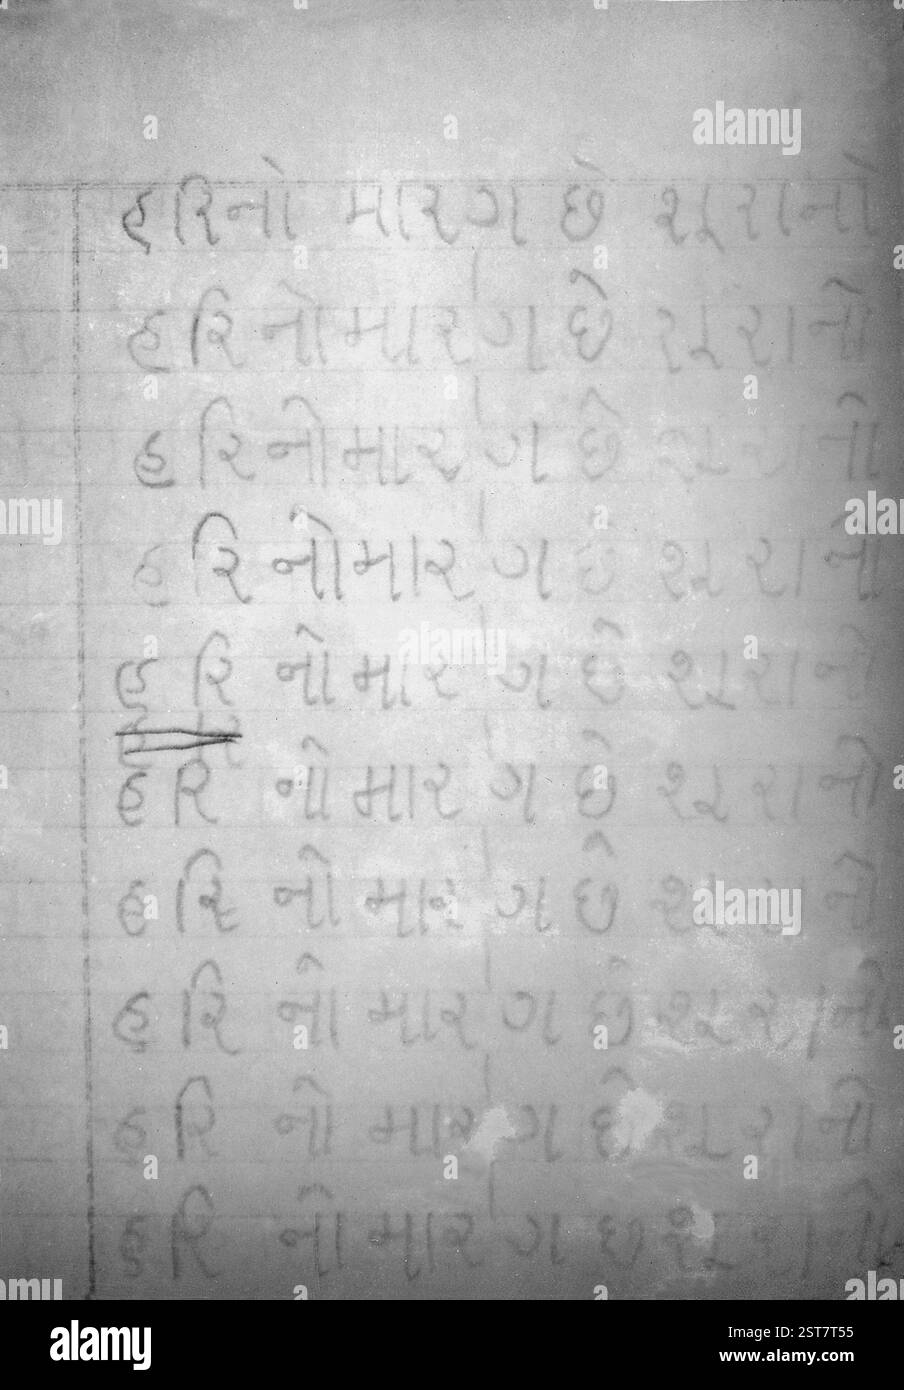 હરિનો મારગ છે શૂરાનો
હરિ નો મારગ છે શૂરાનો
હરિ નો મારગ છે શૂરાનો
હરિ નો મારગ છે શૂરાનો
હરિ નો મારગ છે શૂરાનો
હરિ નો મારગ છે શૂરાનો
હરિ નો મારગ છે શૂરાનો
હરિ નો મારગ છે શૂરાનો
હરિ નો મારગ છે શૂરાનો
હરિ નો મારગ છ શૂરાનો
alamy
Image ID: 2ST7T55
www.alamy.com